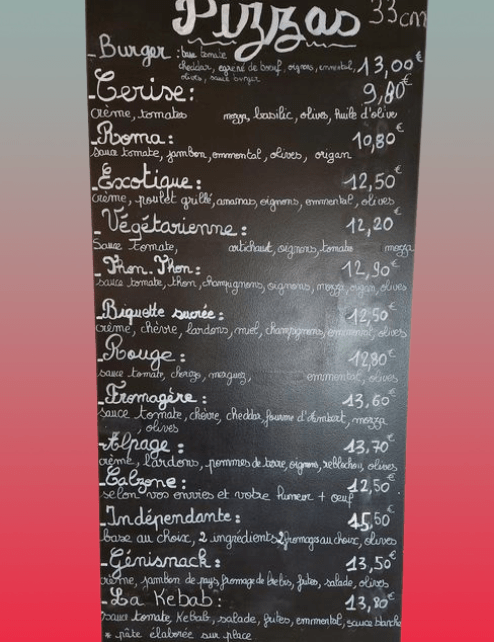 Pizzas 33cm
- Burger : base tomate 13,00€
cheddar, égrené de bœuf, oignons, emmental,
olives, sauce burger
- Cerise : 9,80€
crème, tomates mozza, basilic, olives, huile d'olive
- Roma : 10,80€
sauce tomate, jambon, emmental, olives, origan
- Exotique : 12,50€
crème, poulet grillé, ananas, oignons, emmental, olives
- Végétarienne : 12,20€
Sauce tomate, artichaut, oignons, tomates mozza
- Thon.Thon : 12,90€
sauce tomate, thon, champignons, oignons, mozza, origan, olives
- Biquette sucrée : 12,50€
crème, chèvre, lardons, miel, champignons, emmental, olives
- Rouge : 12,80€
sauce tomate, chorizo, merguez, emmental, olives
- Fromagère : 13,60€
sauce tomate, chèvre, cheddar, fourme d'Ambert, mozza
, olives
- Alpage : 13,70€
crème, lardons, pommes de terre, oignons, reblochon, olives
- Calzone : 12,50€
selon vos envies et votre humeur + oeuf
- Indépendante : 15,50€
base au choix, 2 ingrédients, 2 fromages au choix, olives
- Génisnack : 13,50€
crème, jambon de pays, fromage de brebis, frites, salade, olives
- La Kebab : 13,80€
sauce tomate, Kebab, salade, frites, emmental, sauce blanche
* pâte élaborée sur place